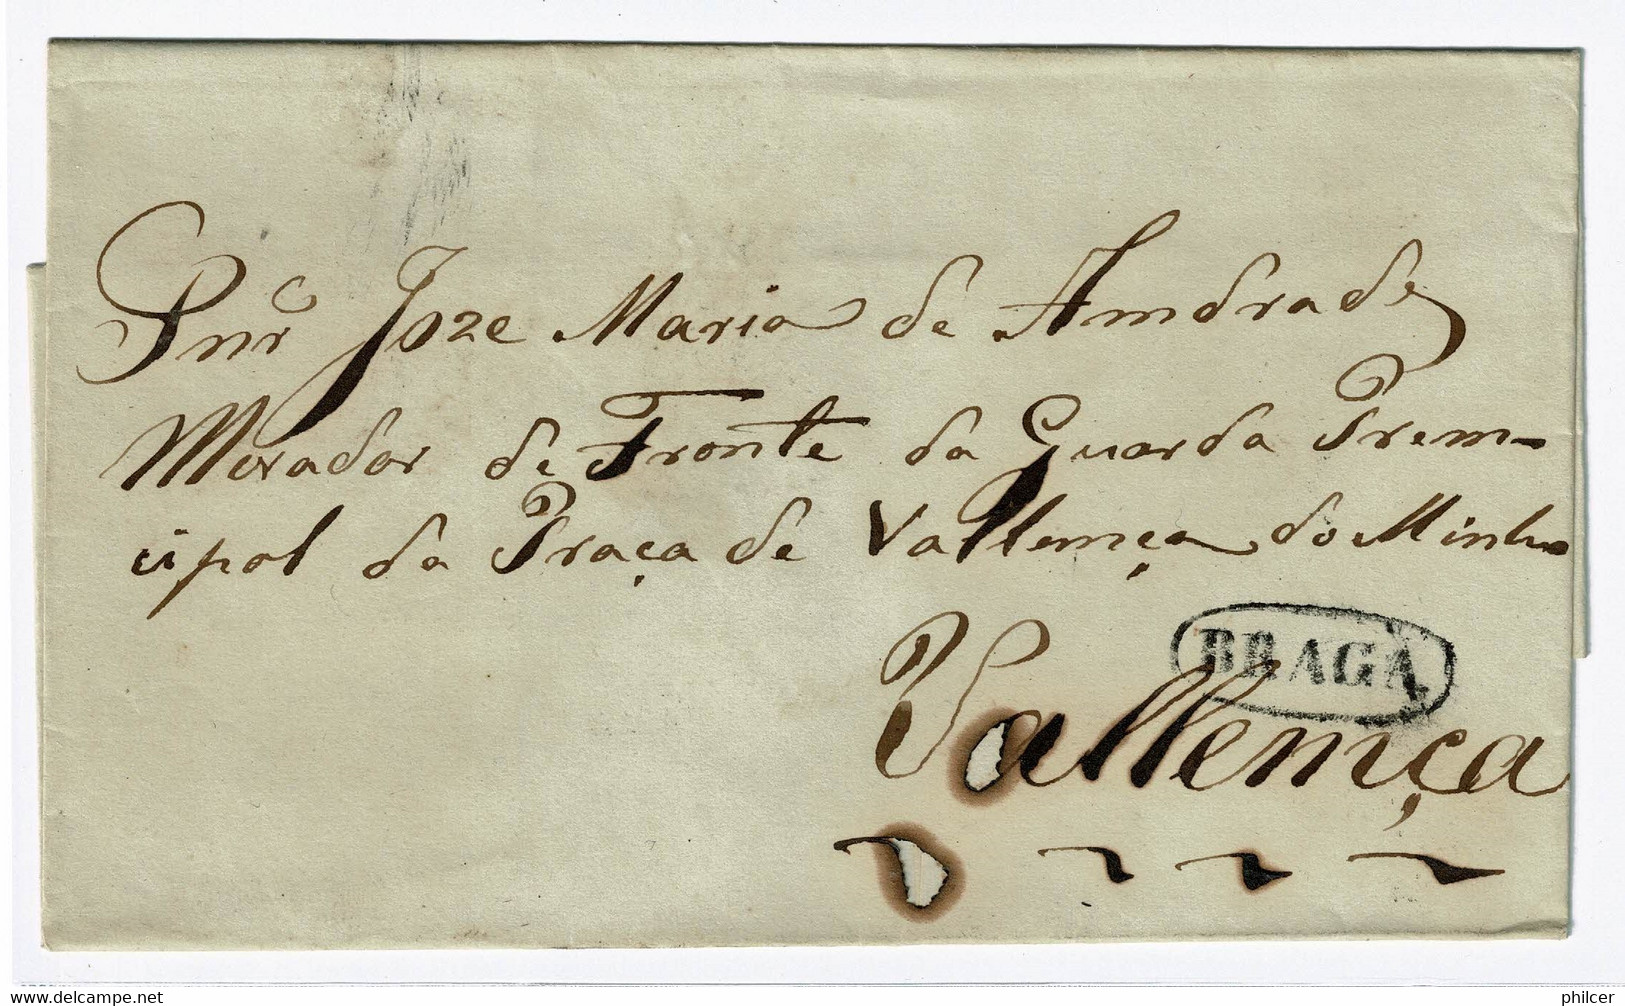 Snr. Joze Maria de Andrade
Morador de Fronte da Guarda Prem-
cipal da Praça de Vallemça do Minho
BRAGA
Vallemça
www.delcampe.net
philcer